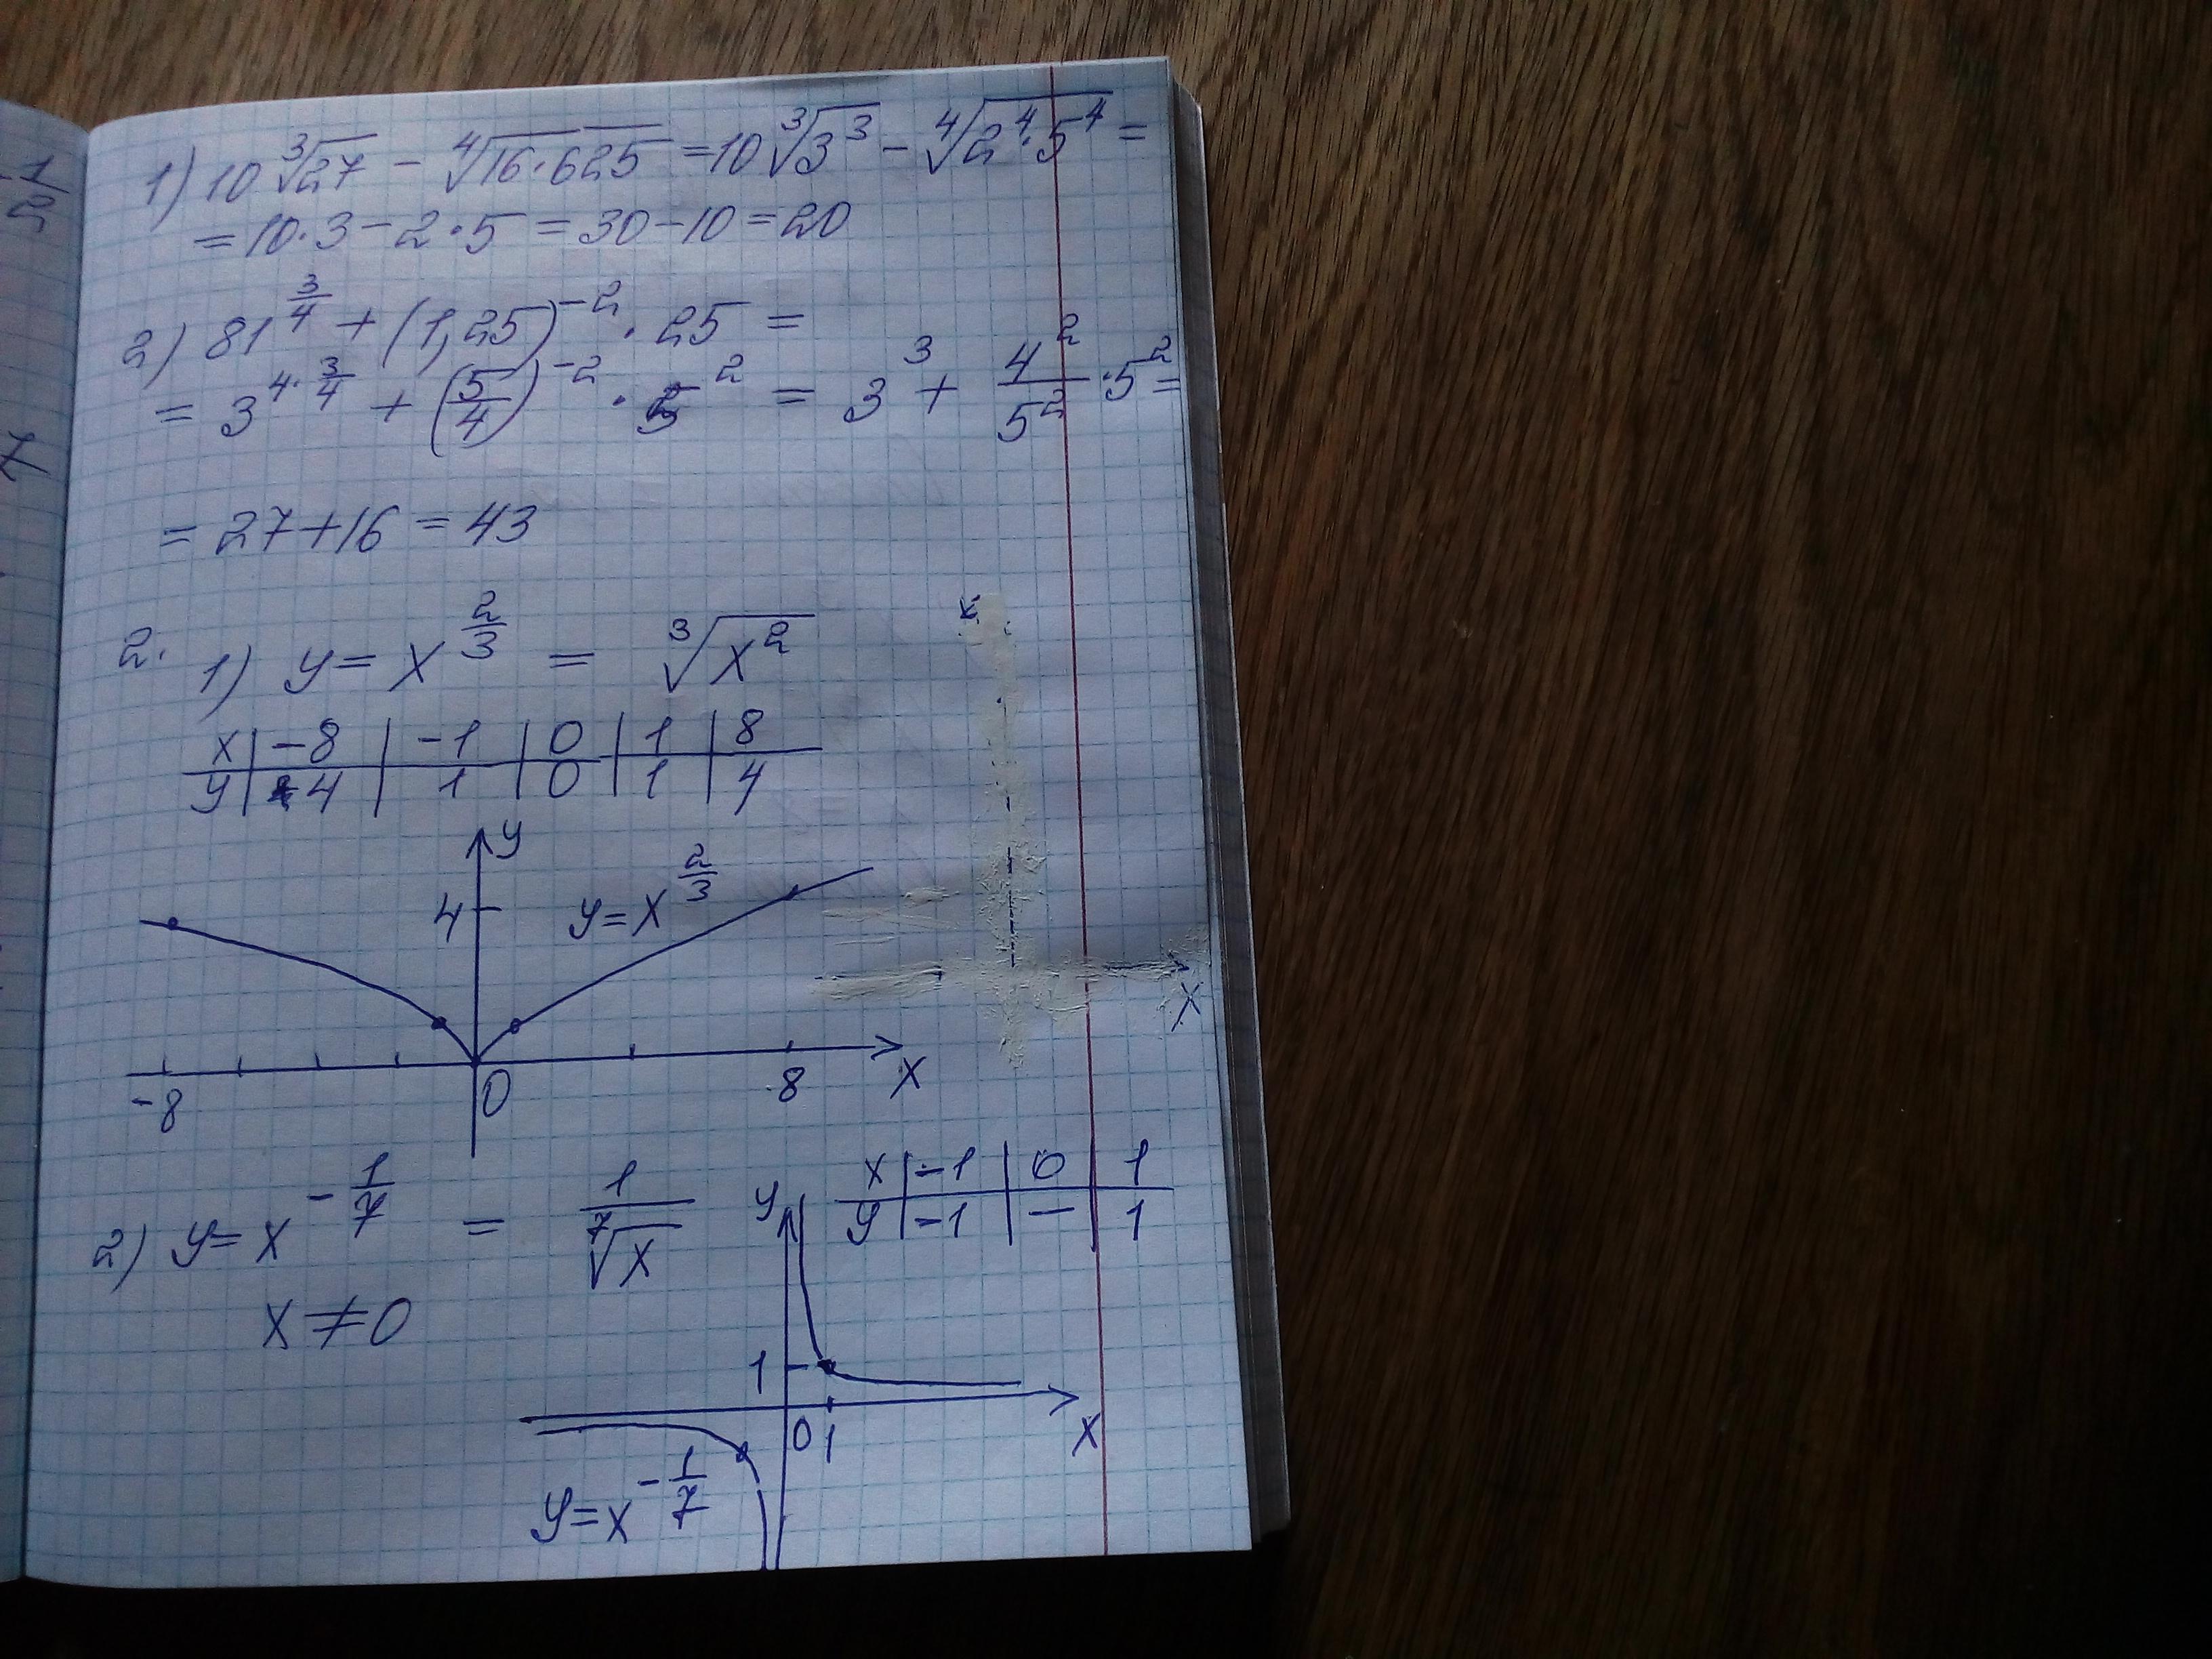 1) 10∛27 − ∜(16·625) = 10∛(3³) − ∜(2⁴·5⁴) =
= 10·3 − 2·5 = 30 − 10 = 20
2) 81^(3/4) + (1,25)^(−2) · 25 =
= 3^(4·3/4) + (5/4)^(−2) · 5² = 3³ + 4²/5² · 5² =
= 27 + 16 = 43
2. 1) y = x^(2/3) = ∛(x²)
x | −8 | −1 | 0 | 1 | 8
y | 4 | 1 | 0 | 1 | 4
y
4
y = x^(2/3)
x
−8 0 8 x
2) y = x^(−1/7) = 1/⁷√x
x ≠ 0
x | −1 | 0 | 1
y | −1 | — | 1
y
1
0 1 x
y = x^(−1/7)